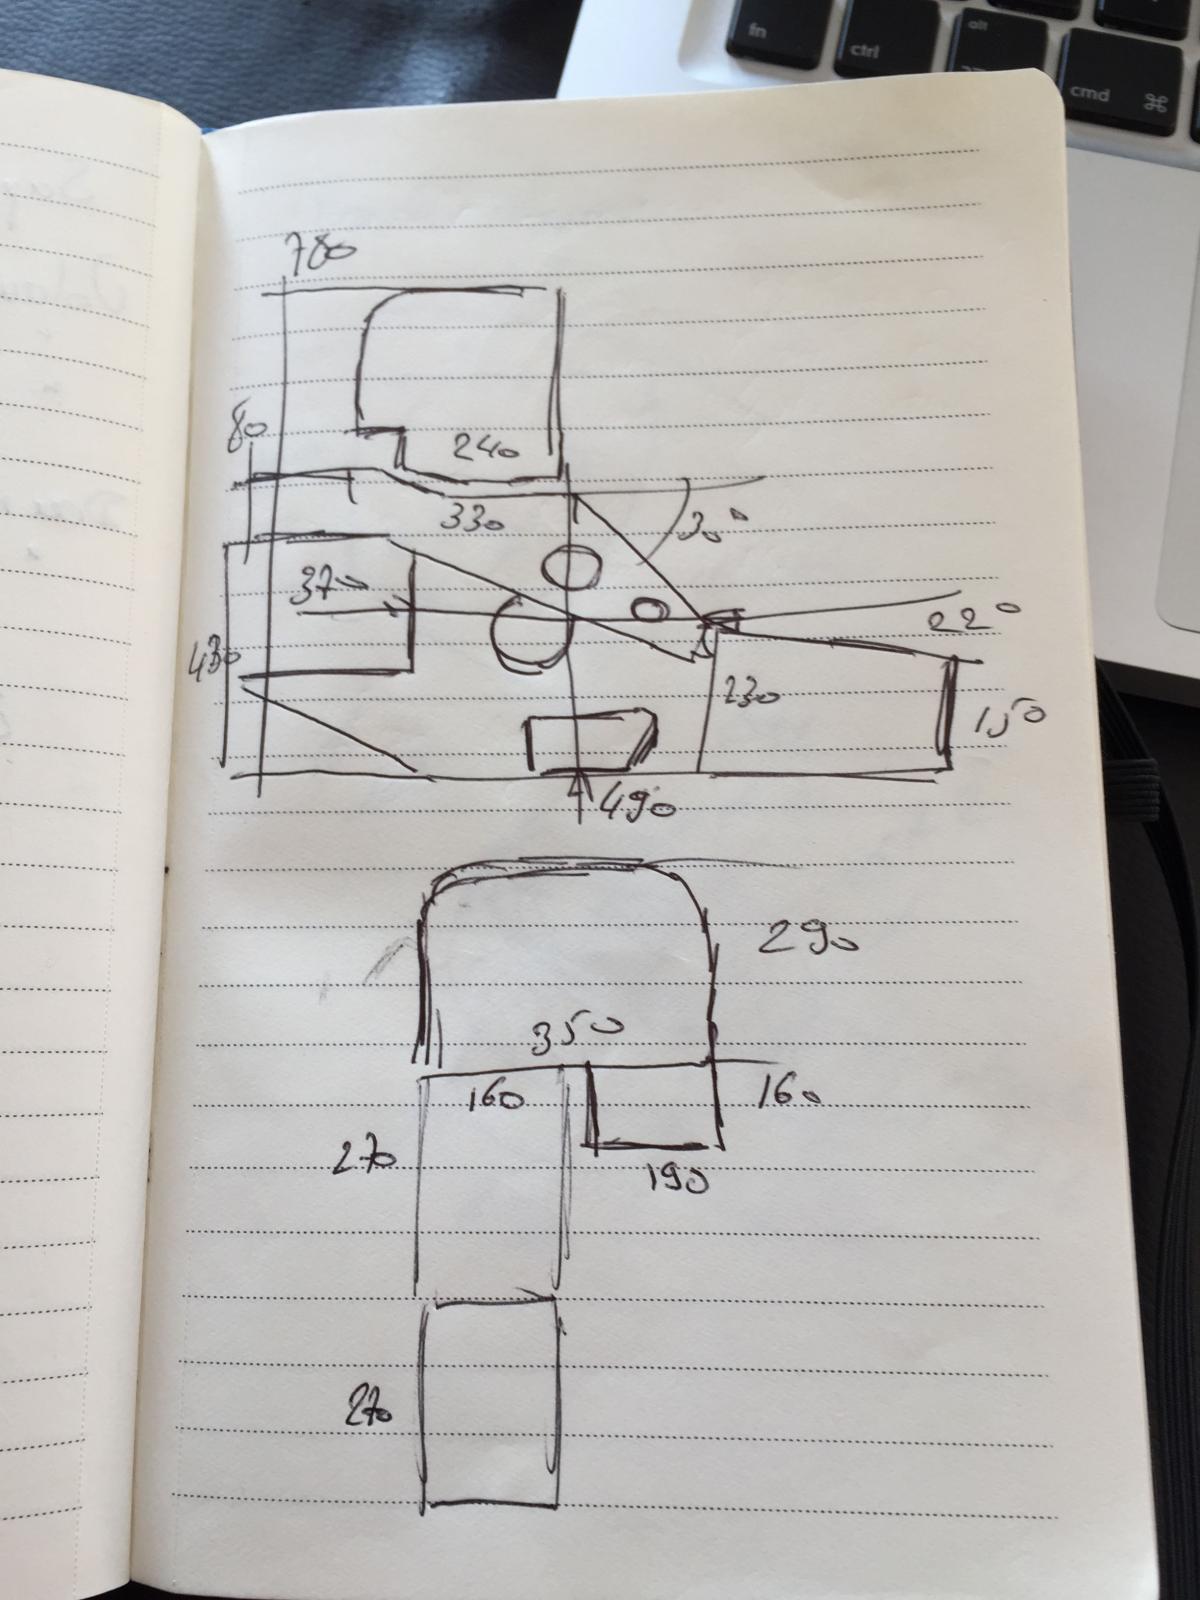 fn
ctrl
alt
cmd ⌘
780
80
240
330
30°
370
22°
430
230
150
490
290
350
160
160
270
190
270